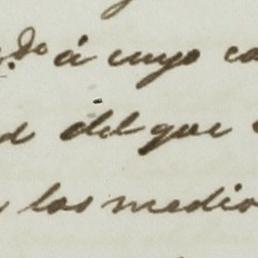 á cuyo
del que
los medio